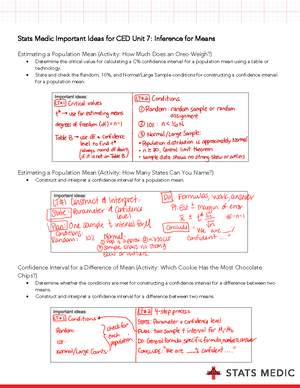 Stats Medic Important Ideas for CED Unit 7: Inference for Means
Estimating a Population Mean (Activity: How Much Does an Oreo Weigh?)
• Determine the critical value for calculating a C% confidence interval for a population mean using a table or
technology.
• State and check the Random, 10%, and Normal/Large Sample conditions for constructing a confidence interval
for a population mean.
Important ideas:
LT#1 Critical values
t* → use for estimating means
degrees of freedom (df) = n-1
Table B → use df & confidence
level to find t*
(always round df down
if it is not on Table B)
LT#2 Conditions
① Random: random sample or random
assignment
② 10%: n < 1/10 N
③ Normal/Large Sample:
• Population distribution is approximately Normal
• n ≥ 30, Central Limit Theorem
• sample data shows no strong skew or outliers
Estimating a Population Mean (Activity: How Many States Can You Name?)
• Construct and interpret a confidence interval for a population mean.
Important ideas:
LT#1 Construct & Interpret:
State: Parameter & Confidence
level
Plan: One sample t interval for μ
Conditions:
Random: 10% Normal:
① Pop is approx ② n≥30
③ Sample shows no strong
skew or outliers
Do: Formulas, work, answer
Pt. Est ± margin of error
x̄ ± t* s/√n df=n-1
Conclude: "We are __%
confident..."
Confidence Interval for a Difference of Mean (Activity: Which Cookie Has the Most Chocolate
Chips?)
• Determine whether the conditions are met for constructing a confidence interval for a difference between two
means.
• Construct and interpret a confidence interval for a difference between two means.
Important ideas:
LT#1 Conditions
Random
10%
Normal/Large Counts
check for
each
population
LT#2 4-step process
State: Parameter & confidence level
Plan: Two sample t interval for μ₁-μ₂
Do: General formula, specific formula, numbers, answer
Conclude: "We are __% confident..."
STATS MEDIC